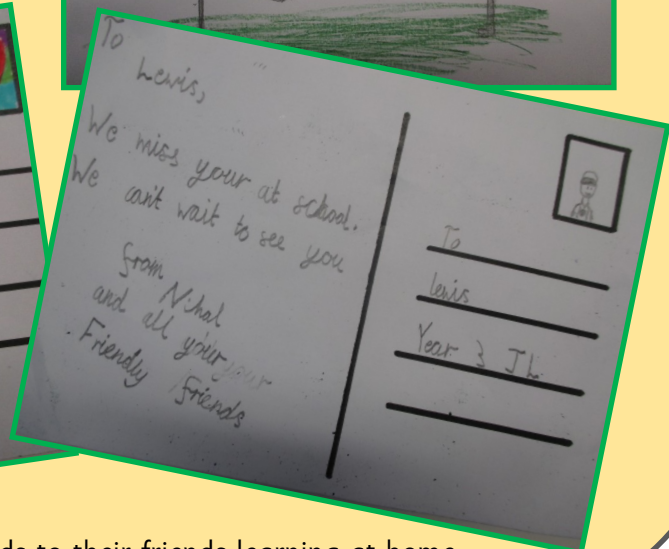 To
Lewis,
We miss your at school.
We can't wait to see you
from Nihal
and all your
Friendly Friends
To
lewis
Year 3 JL
ds to their friends learning at home